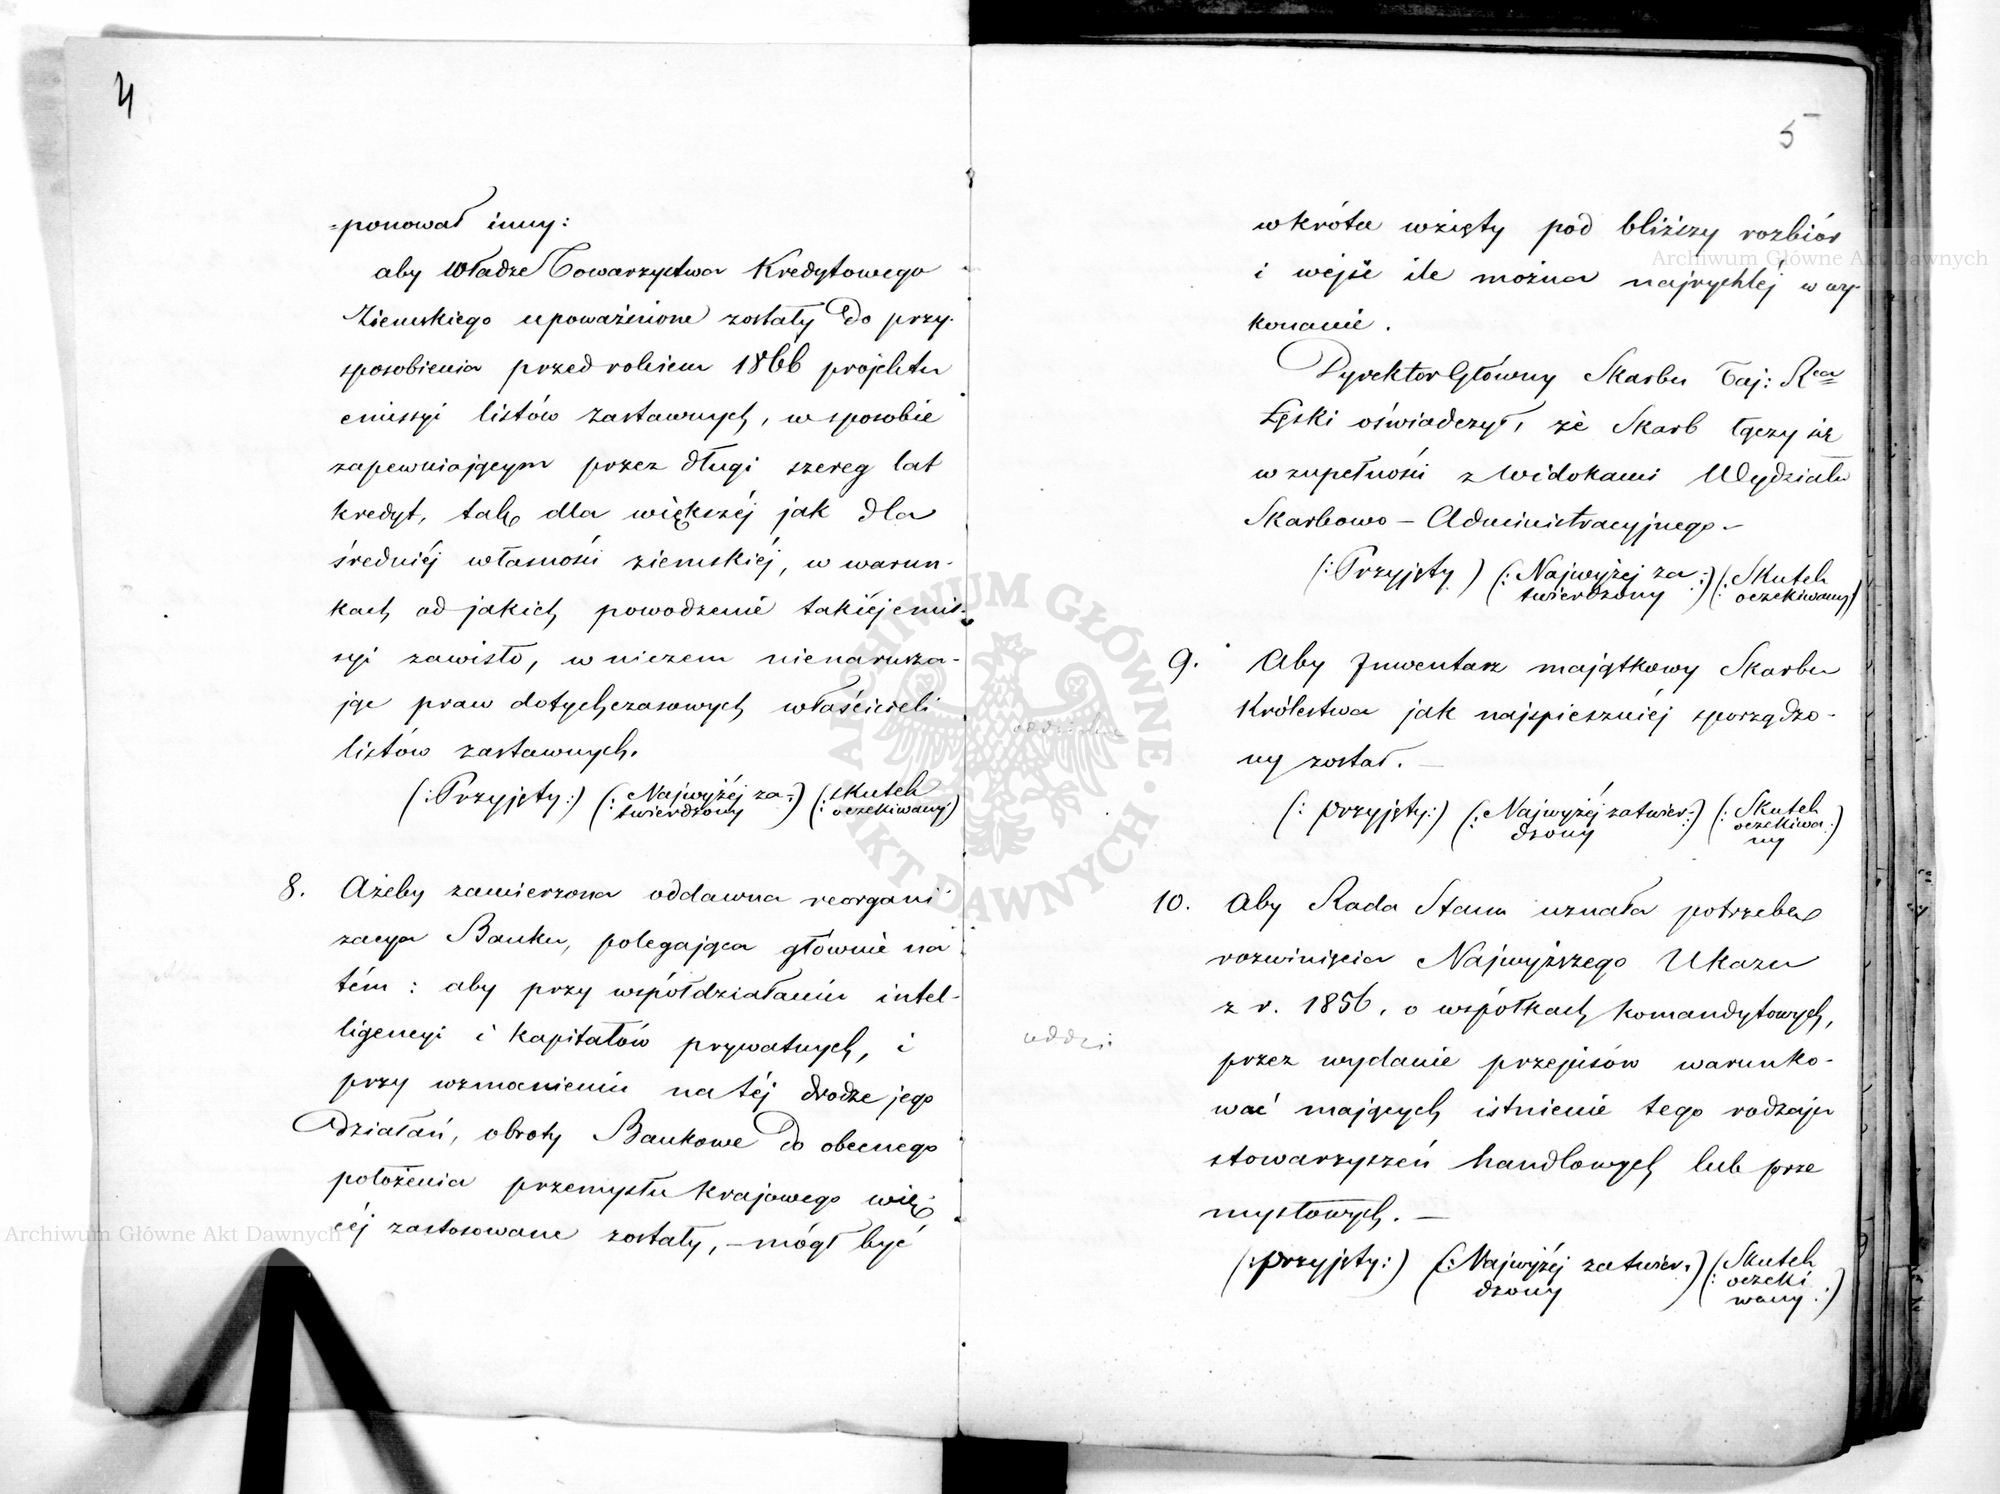 4
=ponował inny:
aby Władze Towarzystwa Kredytowego
Ziemskiego upoważnione zostały do przy-
sposobienia przed rokiem 1866 projektu
emissyi listów zastawnych, w sposobie
zapewniającym przez długi szereg lat
kredyt, tak dla większéj jak dla
średniéj własności ziemskiéj, w warun-
kach od jakich powodzenie takiéj emis-
syi zawisło, w niczem nienarusza-
jąc praw dotychczasowych właścicieli
listów zastawnych.
(:Przyjęty:) (:Najwyżéj za-
twierdzony:) (:skutek
oczekiwany:)
8. Ażeby zamierzona oddawna reorgani
zacya Banku, polegająca głównie na
tém: aby przy współdziałaniu intel-
ligencyi i kapitałów prywatnych, i
przy wzmocnieniu na téj drodze jego
działań, obroty Bankowe do obecnego
położenia przemysłu krajowego wię-
céj zastosowane zostały, – mógł być
5
wkrótce wzięty pod bliższy rozbiór
i wejść ile można najrychléj w wy-
konanie.
Dyrektor Główny Skarbu Taj: Rca
Łęski oświadczył, że Skarb łączy się
w zupełności z widokami Wydziału
Skarbowo – Administracyjnego –
(:Przyjęty) (:Najwyżéj za
twierdzony:) (:Skutek
oczekiwany)
9. Aby Inwentarz majątkowy Skarbu
Królestwa jak najspieszniéj sporządzo-
ny został. –
(:przyjęty:) (:Najwyżéj zatwier-
dzony:) (:Skutek
oczekiwa
ny:)
10. Aby Rada Stanu uznała potrzebę
rozwinięcia Najwyższego Ukazu
z r. 1856, o współkach komandytowych,
przez wydanie przepisów warunko-
wać mających istnienie tego rodzaju
stowarzyszeń handlowych lub prze
mysłowych. –
(:przyjęty:) (:Najwyżéj zatwier-
dzony) (:Skutek
oczeki
wany:)
Archiwum Główne Akt Dawnych
Archiwum Główne Akt Dawnych
ARCHIWUM GŁÓWNE AKT DAWNYCH